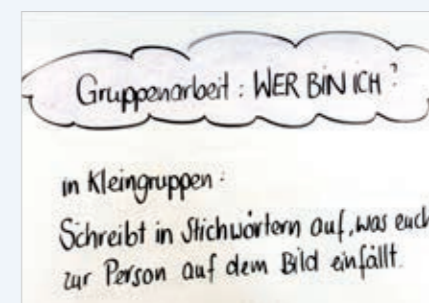 Gruppenarbeit: WER BIN ICH?
in Kleingruppen:
Schreibt in Stichwörtern auf, was euch
zur Person auf dem Bild einfällt.